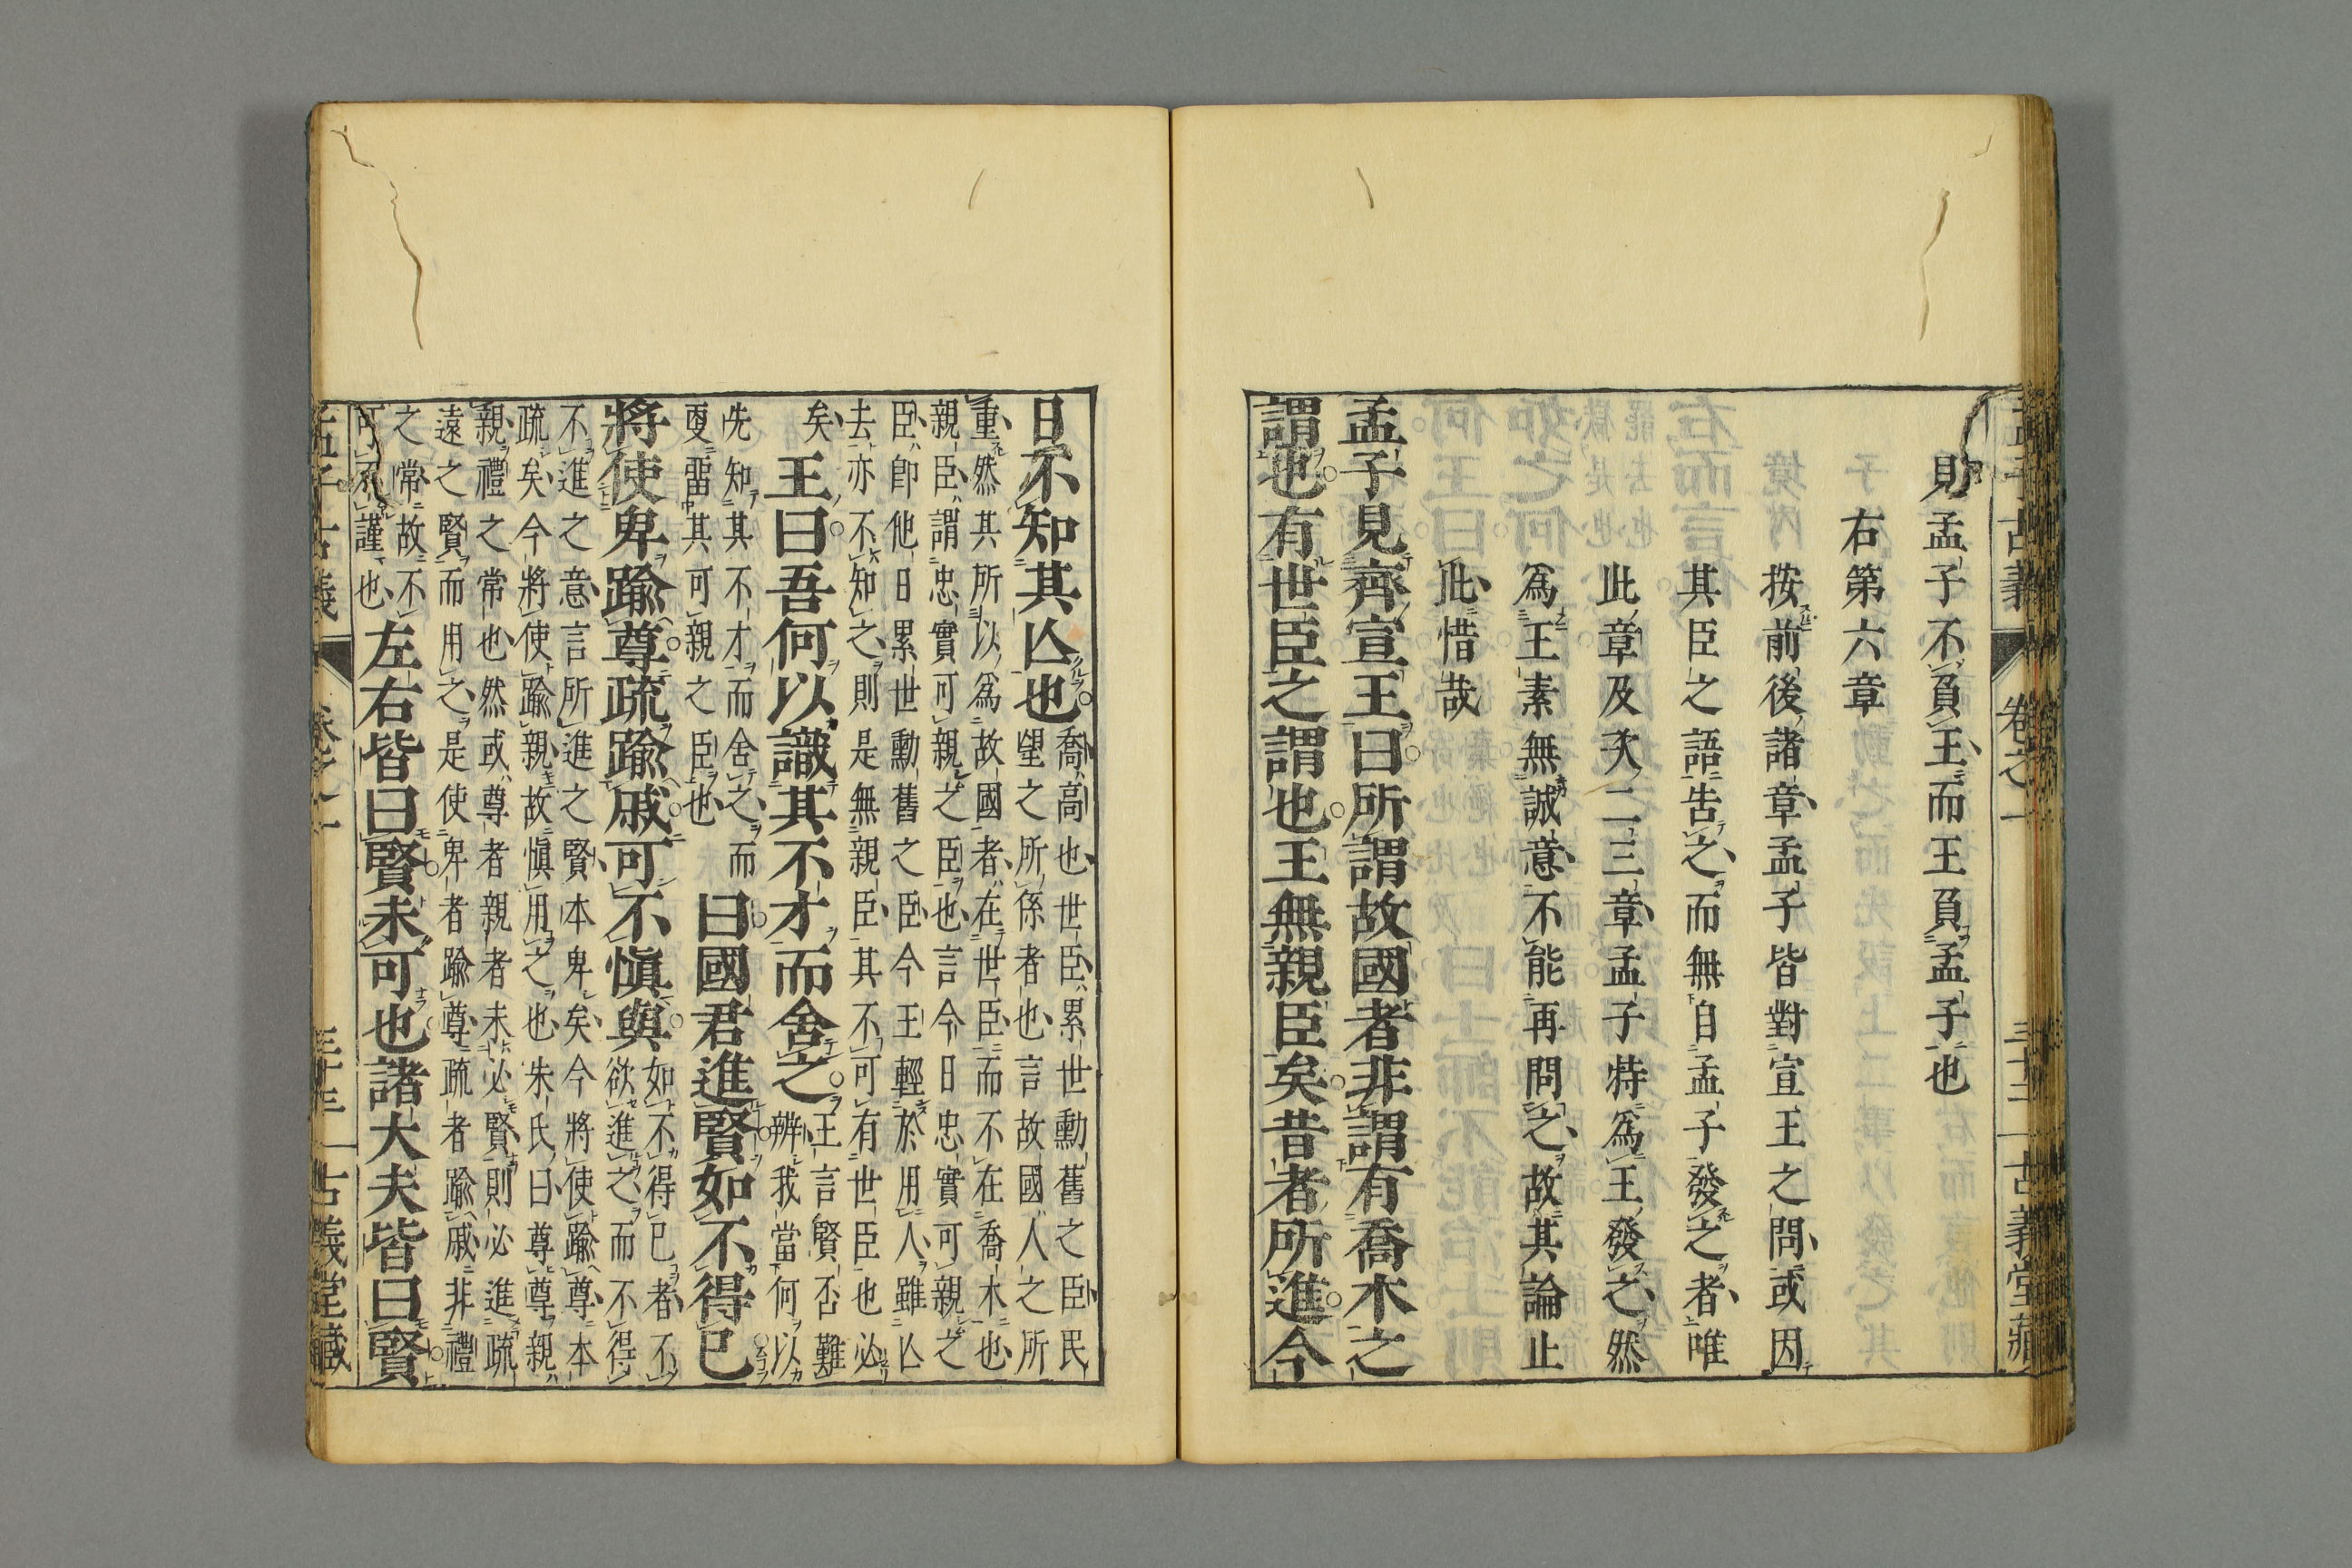 則孟子不負王而王負孟子也
右第六章
按前後諸章孟子皆對宣王之問或因
其臣之語告之而無自孟子發之者唯
此章及次二三章孟子特爲王發之然
爲王素無誠意不能再問之故其論止
此惜哉
孟子見齊宣王曰所謂故國者非謂有喬木之
謂也有世臣之謂也王無親臣矣昔者所進今
日不知其亾也
喬高也世臣累世勳舊之臣民
望之所係者也言故國人之所
重然其所以爲故國者在世臣而不在喬木也
親臣謂忠實可親之臣也言今日忠實可親之
臣卽他日累世勳舊之臣今王輕於用人雖亾
去亦不知之則是無親臣其不可有世臣也必
矣
王曰吾何以識其不才而舍之
王言賢否難
辨我當何以
先知其不才而舍之而
更畱其可親之臣也
曰國君進賢如不得已
將使卑踰尊疏踰戚可不愼與
如不得已者不
欲進之而不得
不進之意言所進之賢本卑矣今將使踰尊本
疏矣今將使踰親故愼用之也朱氏曰尊尊親
親禮之常也然或尊者親者未必賢則必進疏
遠之賢而用之是使卑者踰尊疏者踰戚非禮
之常故不
可不謹也
左右皆曰賢未可也諸大夫皆曰賢
卷之一
三十三
古義堂藏